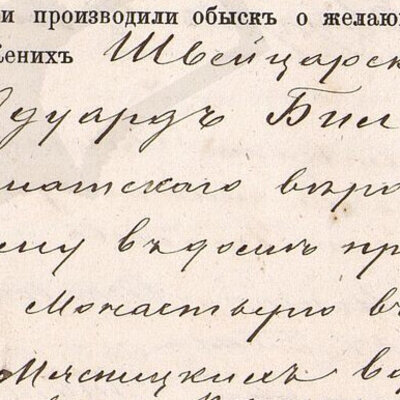 и производили обыскъ о желаю
Женихъ Швейцарск
Эдуардъ Бил
матскаго въро
ему въдомъ пр
Монастырю въ
Мясницкихъ во